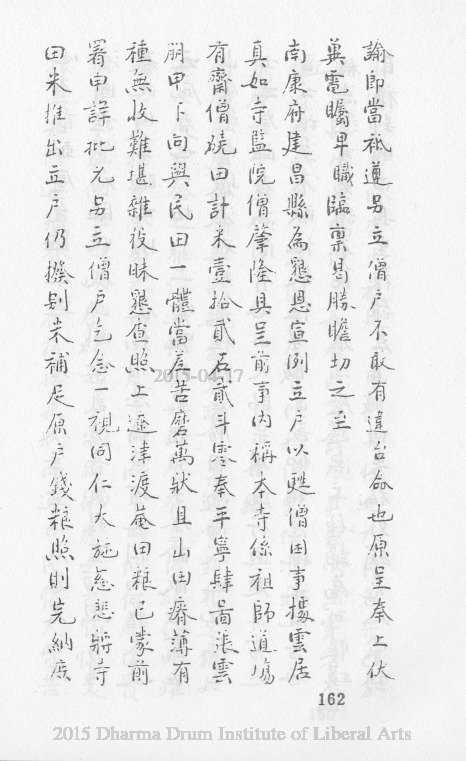 諭即當祗遵另立僧戶不敢有違台命也原呈奉上伏
兾電矚卑職臨稟曷勝瞻切之至
南康府建昌縣為懇恩宣例立戶以甦僧困事據雲居
真如寺監院僧肇隆具呈前事內稱本寺係祖師道場
有齋僧磽田計米壹拾貳石貳斗零奉平寧肆啚張雲
朋甲下向與民田一體當差苦磨萬狀且山田瘠薄有
種無收難堪雜役昧懇查照上遼津渡菴田粮已蒙前
署申詳批允另立僧戶乞念一視同仁大施慈悲將寺
田米推出立戶仍撥別米補足原戶錢粮照則完納庶
162
2015-04-17
2015 Dharma Drum Institute of Liberal Arts